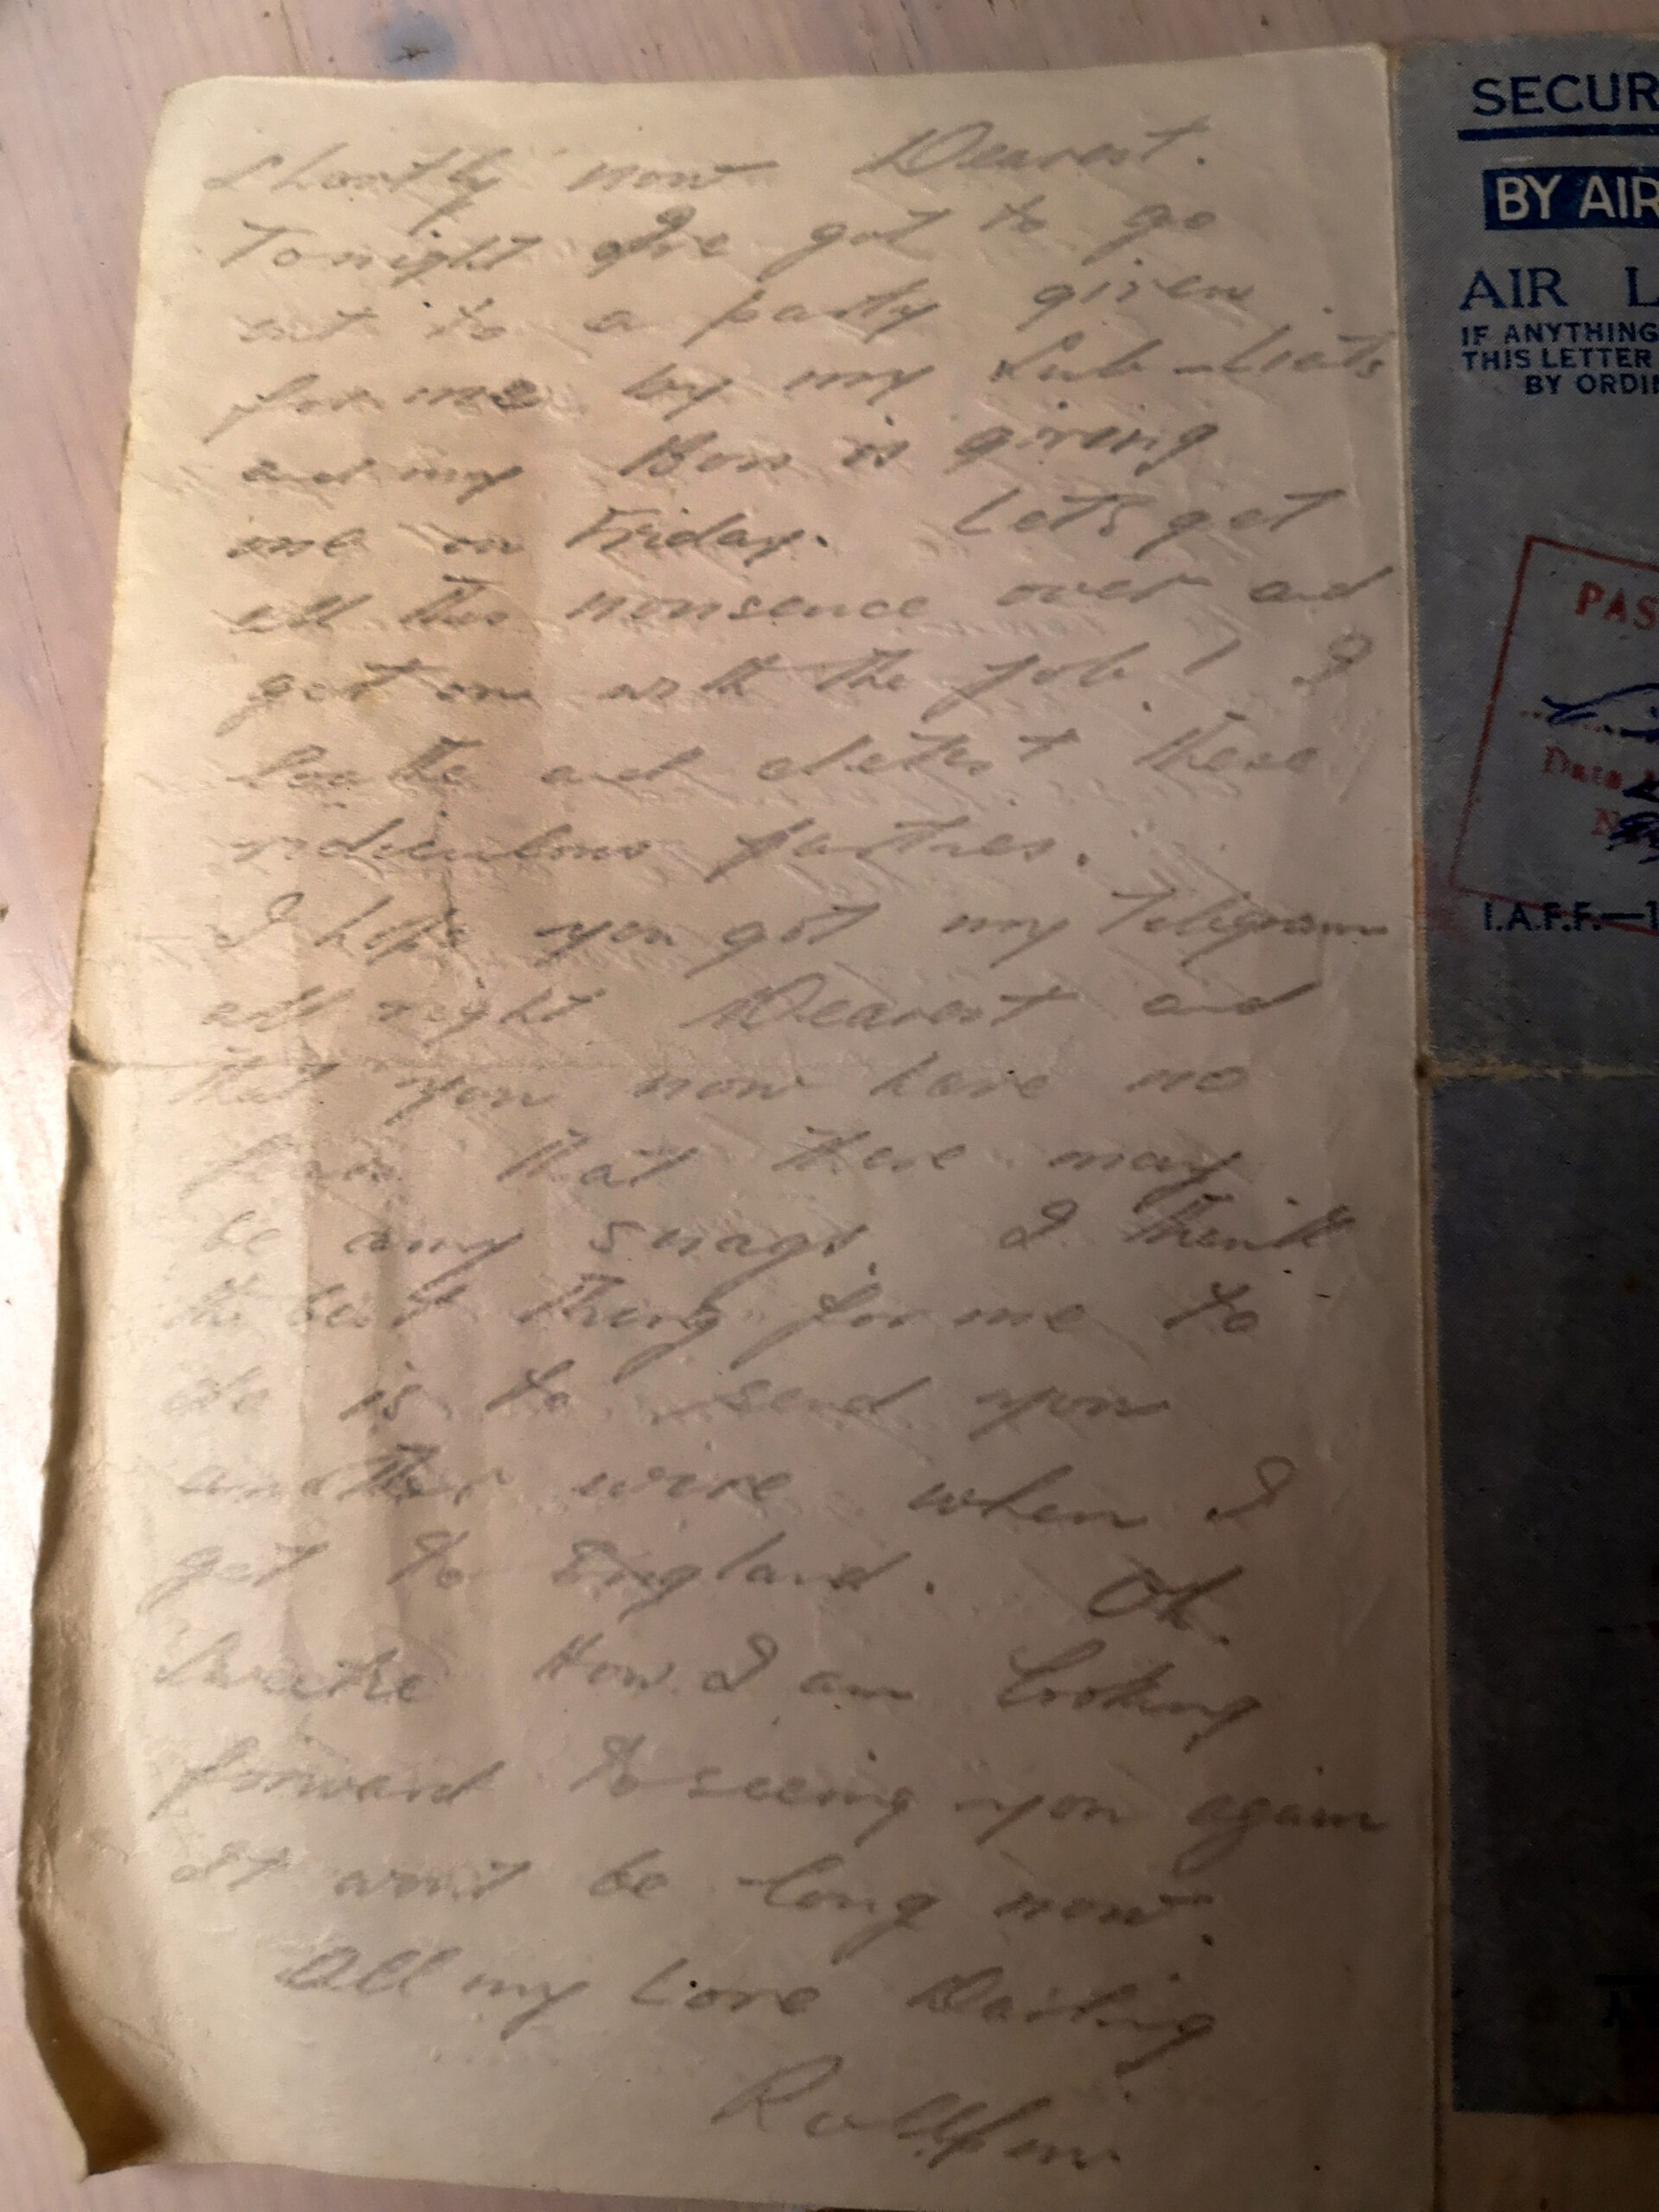 shortly now Dearest.
Tonight I've got to go
out to a party given
for me by my Sub-
and my Boss is giving
one on Friday. Let's get
all this nonsence over and
get on with the job! I
loathe and detest these
ridiculous parties.
I hope you got my Telegram
all right Dearest and
that you now have no
fears that there may
be any snags. I think
the best thing for me to
do is to send you
another wire when I
get to England. Oh
Sweetie How I am looking
forward to seeing you again
It won't be long now.
All my Love Darling
SECUR
BY AIR
AIR L
IF ANYTHING
THIS LETTER
BY ORDI
PAS
Date
I.A.F.F.—1